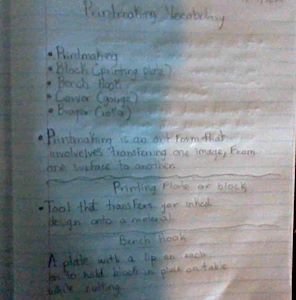 Printmaking Vocabulary
• Printmaking
• Block (printing plate)
• Bench Hook
• Carver (gouge)
• Brayer
• Printmaking is an art form that
involves transfering one image, from
one surface to another.
Printing Plate or block
• Tool that transfers yor inked
design onto a material
Bench hook
A plate with a lip on each
to hold block in place on table
while cutting.